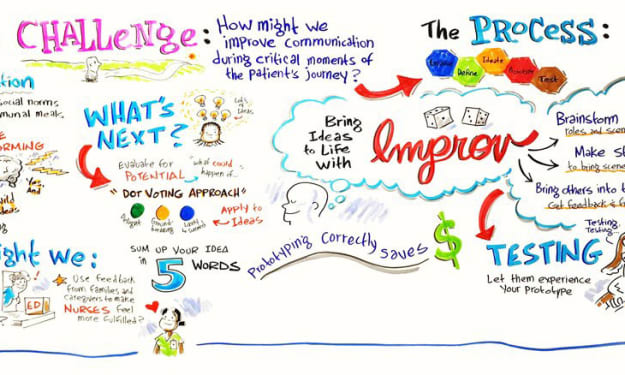 CHALLENGE:
How might we
improve communication
during critical moments of
the patient's journey?
The PROCESS:
Define
Ideate
Prototype
Test
social norms
WHAT'S
NEXT?
Evaluate for
POTENTIAL
what could
happen if...
"DOT VOTING APPROACH"
Apply to
Ideas
Yes,
And
SUM UP YOUR IDEA
in 5 WORDS
ight we:
Use feedback
from families and
caregivers to make
NURSES feel
more fulfilled?
ED
Bring
Ideas
to Life
with
Improv
Brainstorm
roles and
Make
to bring
Bring others into
Get feedback &
Prototyping Correctly saves $
TESTING
Let them experience
Your prototype
Testing,
Testing